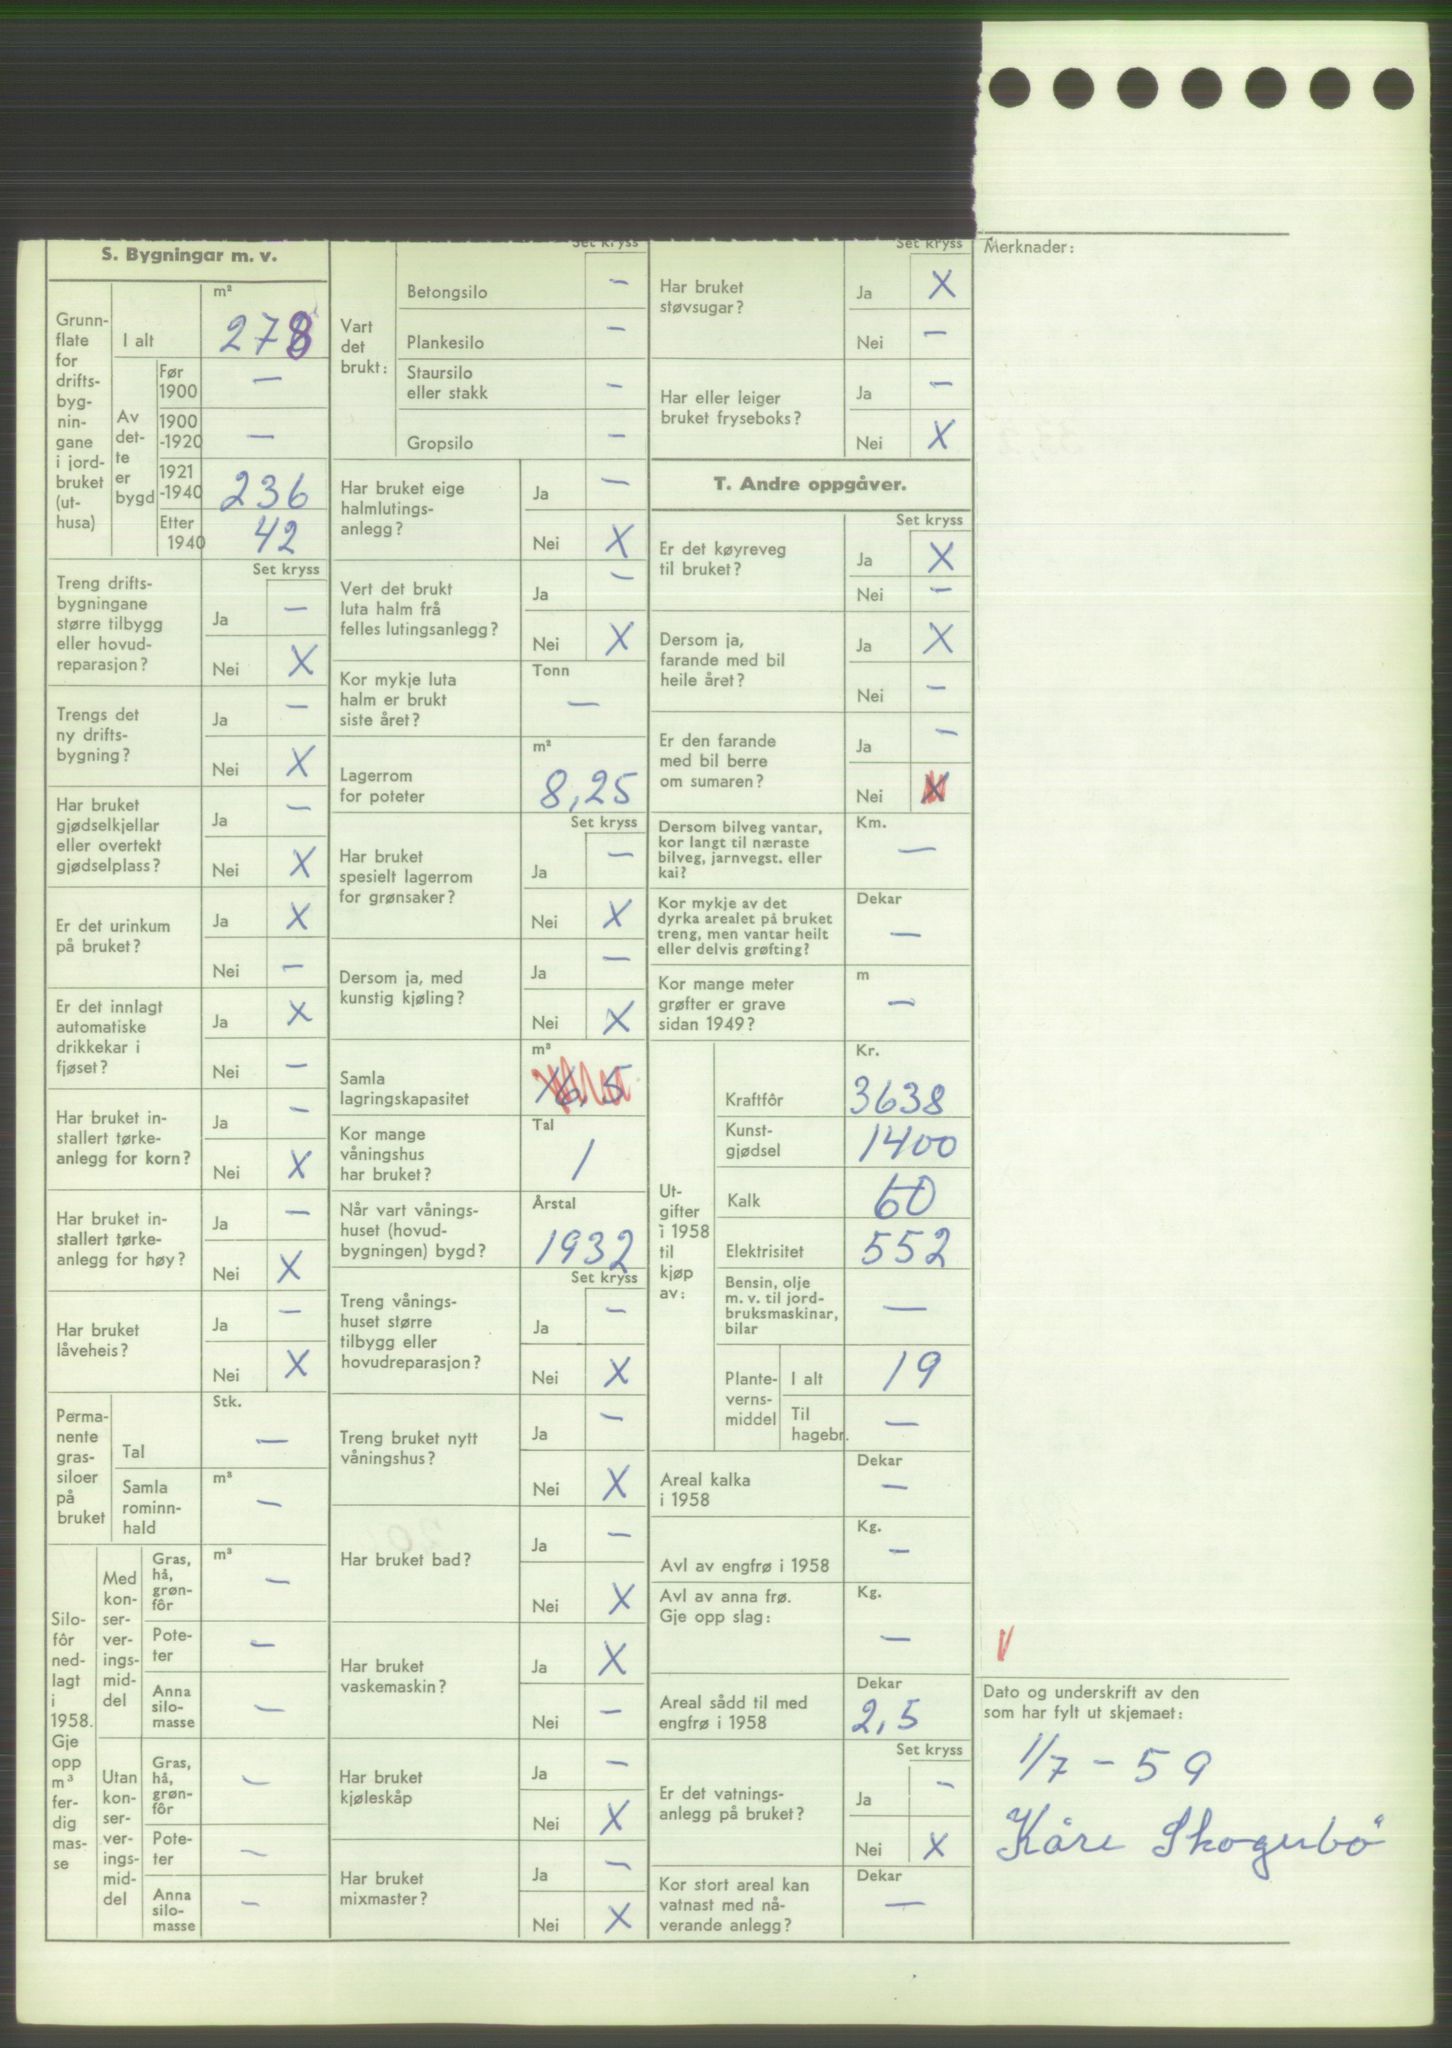 S. Bygningar m. v.
Grunn-
flate
for
drifts-
byg-
nin-
gane
i jord-
bruket
(ut-
husa)
m²
I alt 278
Av
det-
te
er
bygd
Før
1900 —
1900
-1920 —
1921
-1940 236
Etter
1940 42
Set kryss
Treng drifts-
bygningane
større tilbygg
eller hovud-
reparasjon?
Ja —
Nei X
Trengs det
ny drifts-
bygning?
Ja —
Nei X
Har bruket
gjødselkjellar
eller overtekt
gjødselplass?
Ja —
Nei X
Er det urinkum
på bruket?
Ja X
Nei —
Er det innlagt
automatiske
drikkekar i
fjøset?
Ja X
Nei —
Har bruket in-
stallert tørke-
anlegg for korn?
Ja —
Nei X
Har bruket in-
stallert tørke-
anlegg for høy?
Ja —
Nei X
Har bruket
låveheis?
Ja —
Nei X
Perma-
nente
gras-
siloer
på
bruket
Stk.
Tal —
m³
Samla
rominn-
hald —
Silo-
fôr
ned-
lagt
i
1958.
Gje
opp
m³
fer-
dig
mas-
se
Med
kon-
ser-
ver-
ings-
mid-
del
m³
Gras,
hå,
grøn-
fôr —
Pote-
ter —
Anna
silo-
masse —
Utan
kon-
ser-
ver-
ings-
mid-
del
Gras,
hå,
grøn-
fôr —
Pote-
ter —
Anna
silo-
masse —
Set kryss
Vart
det
brukt:
Betongsilo —
Plankesilo —
Staursilo
eller stakk —
Gropsilo —
Har bruket eige
halmlutings-
anlegg?
Ja —
Nei X
Vert det brukt
luta halm frå
felles lutingsanlegg?
Ja —
Nei X
Kor mykje luta
halm er brukt
siste året?
Tonn
—
Lagerrom
for poteter
m²
8,25
Set kryss
Har bruket
spesielt lagerrom
for grønsaker?
Ja —
Nei X
Dersom ja, med
kunstig kjøling?
Ja —
Nei X
Samla
lagringskapasitet
m³
Kor mange
våningshus
har bruket?
Tal
1
Når vart vånings-
huset (hovud-
bygningen) bygd?
Årstal
1932
Set kryss
Treng vånings-
huset større
tilbygg eller
hovudreparasjon?
Ja —
Nei X
Treng bruket nytt
våningshus?
Ja —
Nei X
Har bruket bad?
Ja —
Nei X
Har bruket
vaskemaskin?
Ja X
Nei —
Har bruket
kjøleskåp
Ja —
Nei X
Har bruket
mixmaster?
Ja —
Nei X
Set kryss
Har bruket
støvsugar?
Ja X
Nei —
Har eller leiger
bruket fryseboks?
Ja —
Nei X
T. Andre oppgåver.
Set kryss
Er det køyreveg
til bruket?
Ja X
Nei —
Dersom ja,
farande med bil
heile året?
Ja X
Nei —
Er den farande
med bil berre
om sumaren?
Ja —
Nei X
Dersom bilveg vantar,
kor langt til næraste
bilveg, jarnvegst. eller
kai?
Km.
—
Kor mykje av det
dyrka arealet på bruket
treng, men vantar heilt
eller delvis grøfting?
Dekar
—
Kor mange meter
grøfter er grave
sidan 1949?
m
—
Ut-
gifter
i 1958
til
kjøp
av:
Kr.
Kraftfôr 3638
Kunst-
gjødsel 1400
Kalk 60
Elektrisitet 552
Bensin, olje
m. v. til jord-
bruksmaskinar,
bilar —
Plante-
verns-
middel
I alt 19
Til
hagebr. —
Areal kalka
i 1958
Dekar
—
Avl av engfrø i 1958
Kg.
—
Avl av anna frø.
Gje opp slag:
Kg.
—
Areal sådd til med
engfrø i 1958
Dekar
2,5
Set kryss
Er det vatnings-
anlegg på bruket?
Ja —
Nei X
Kor stort areal kan
vatnast med nå-
verande anlegg?
Dekar
—
Merknader:
V
Dato og underskrift av den
som har fylt ut skjemaet:
1/7 - 59
Kåre Skogubö